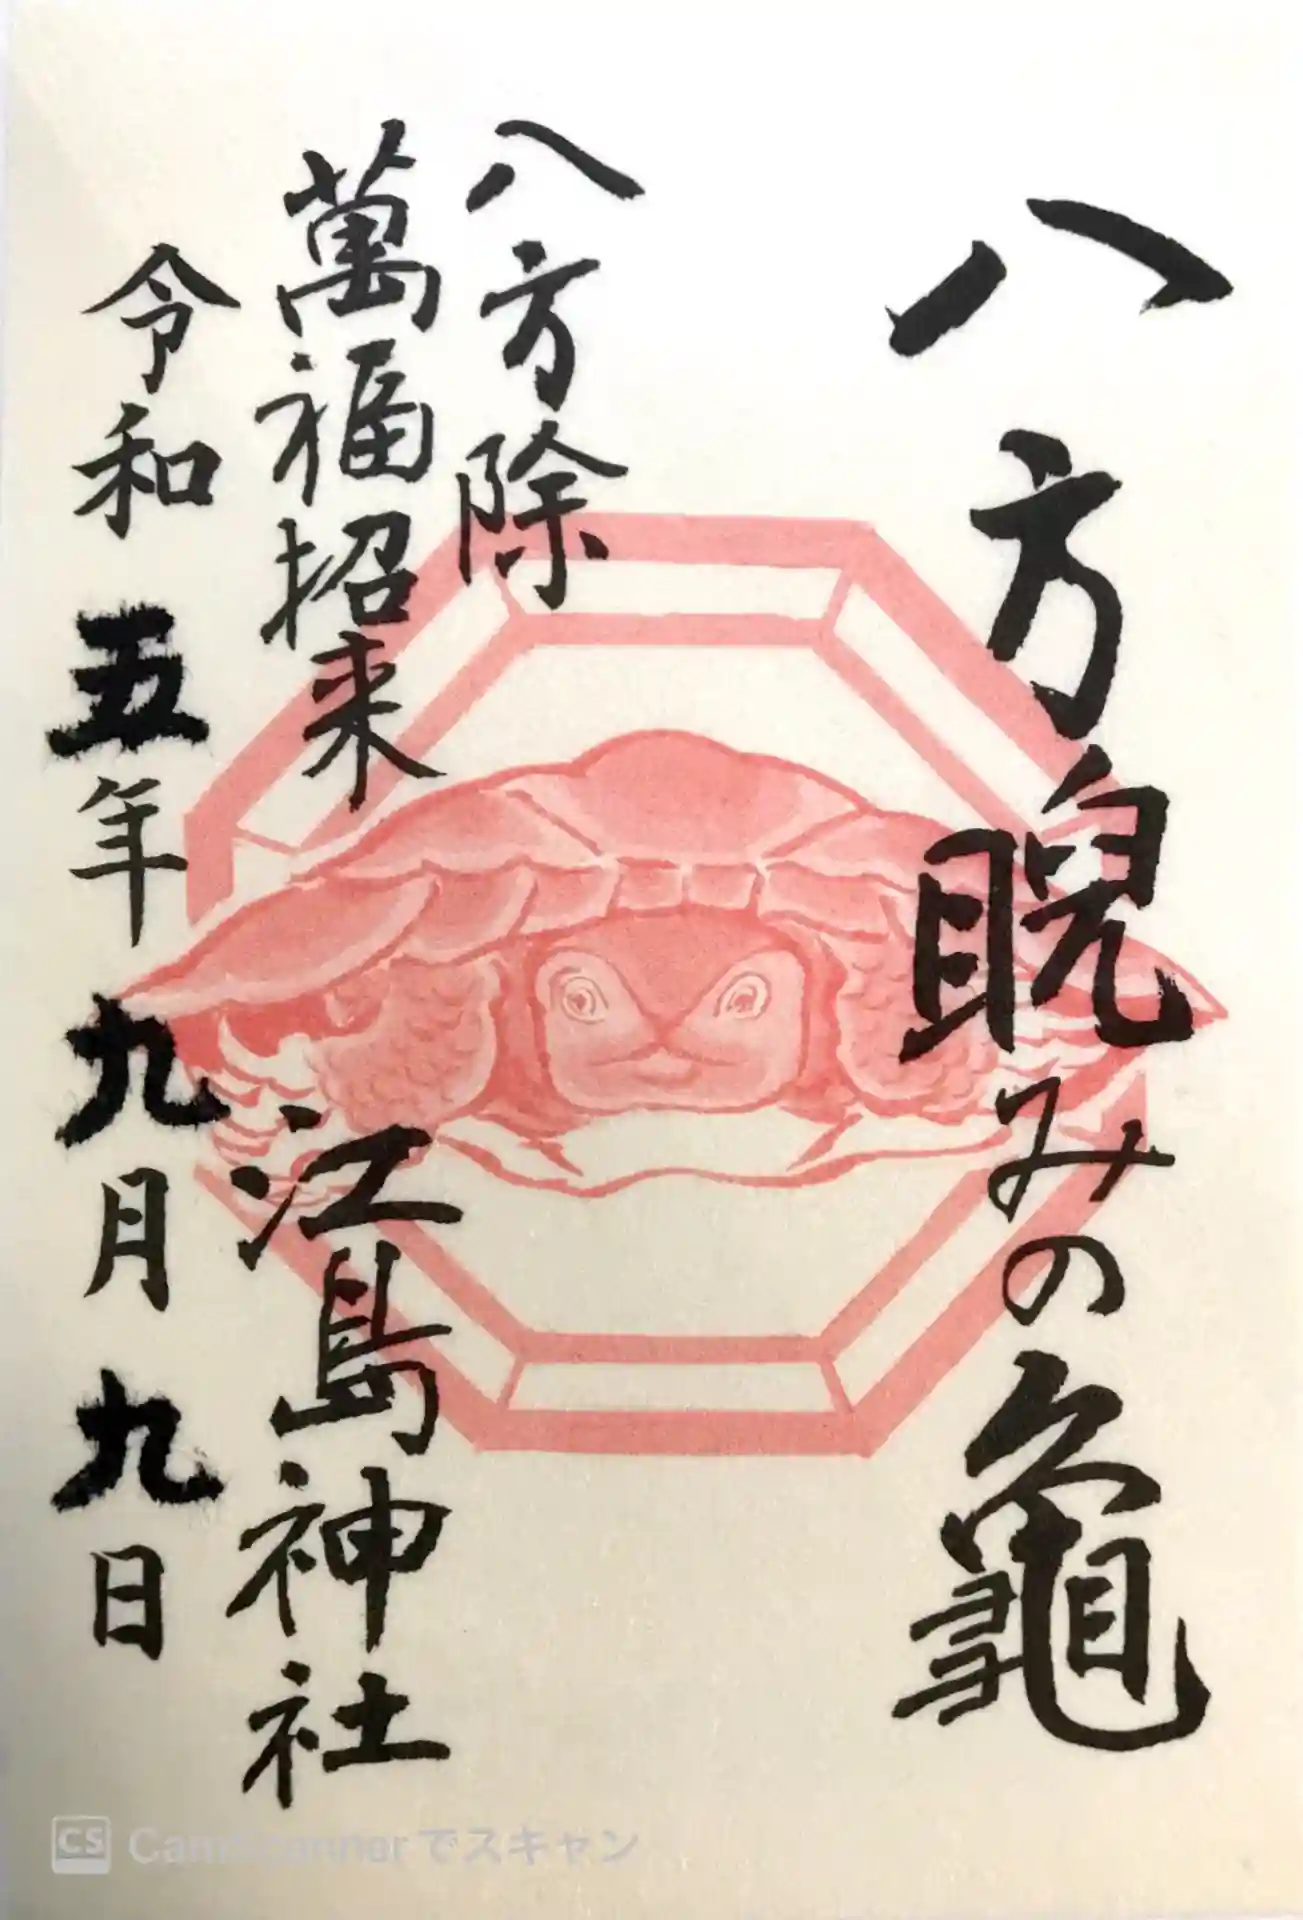 八方睨みの龜
八方除
萬福招来
江島神社
令和五年九月九日
CS CamScannerでスキャン